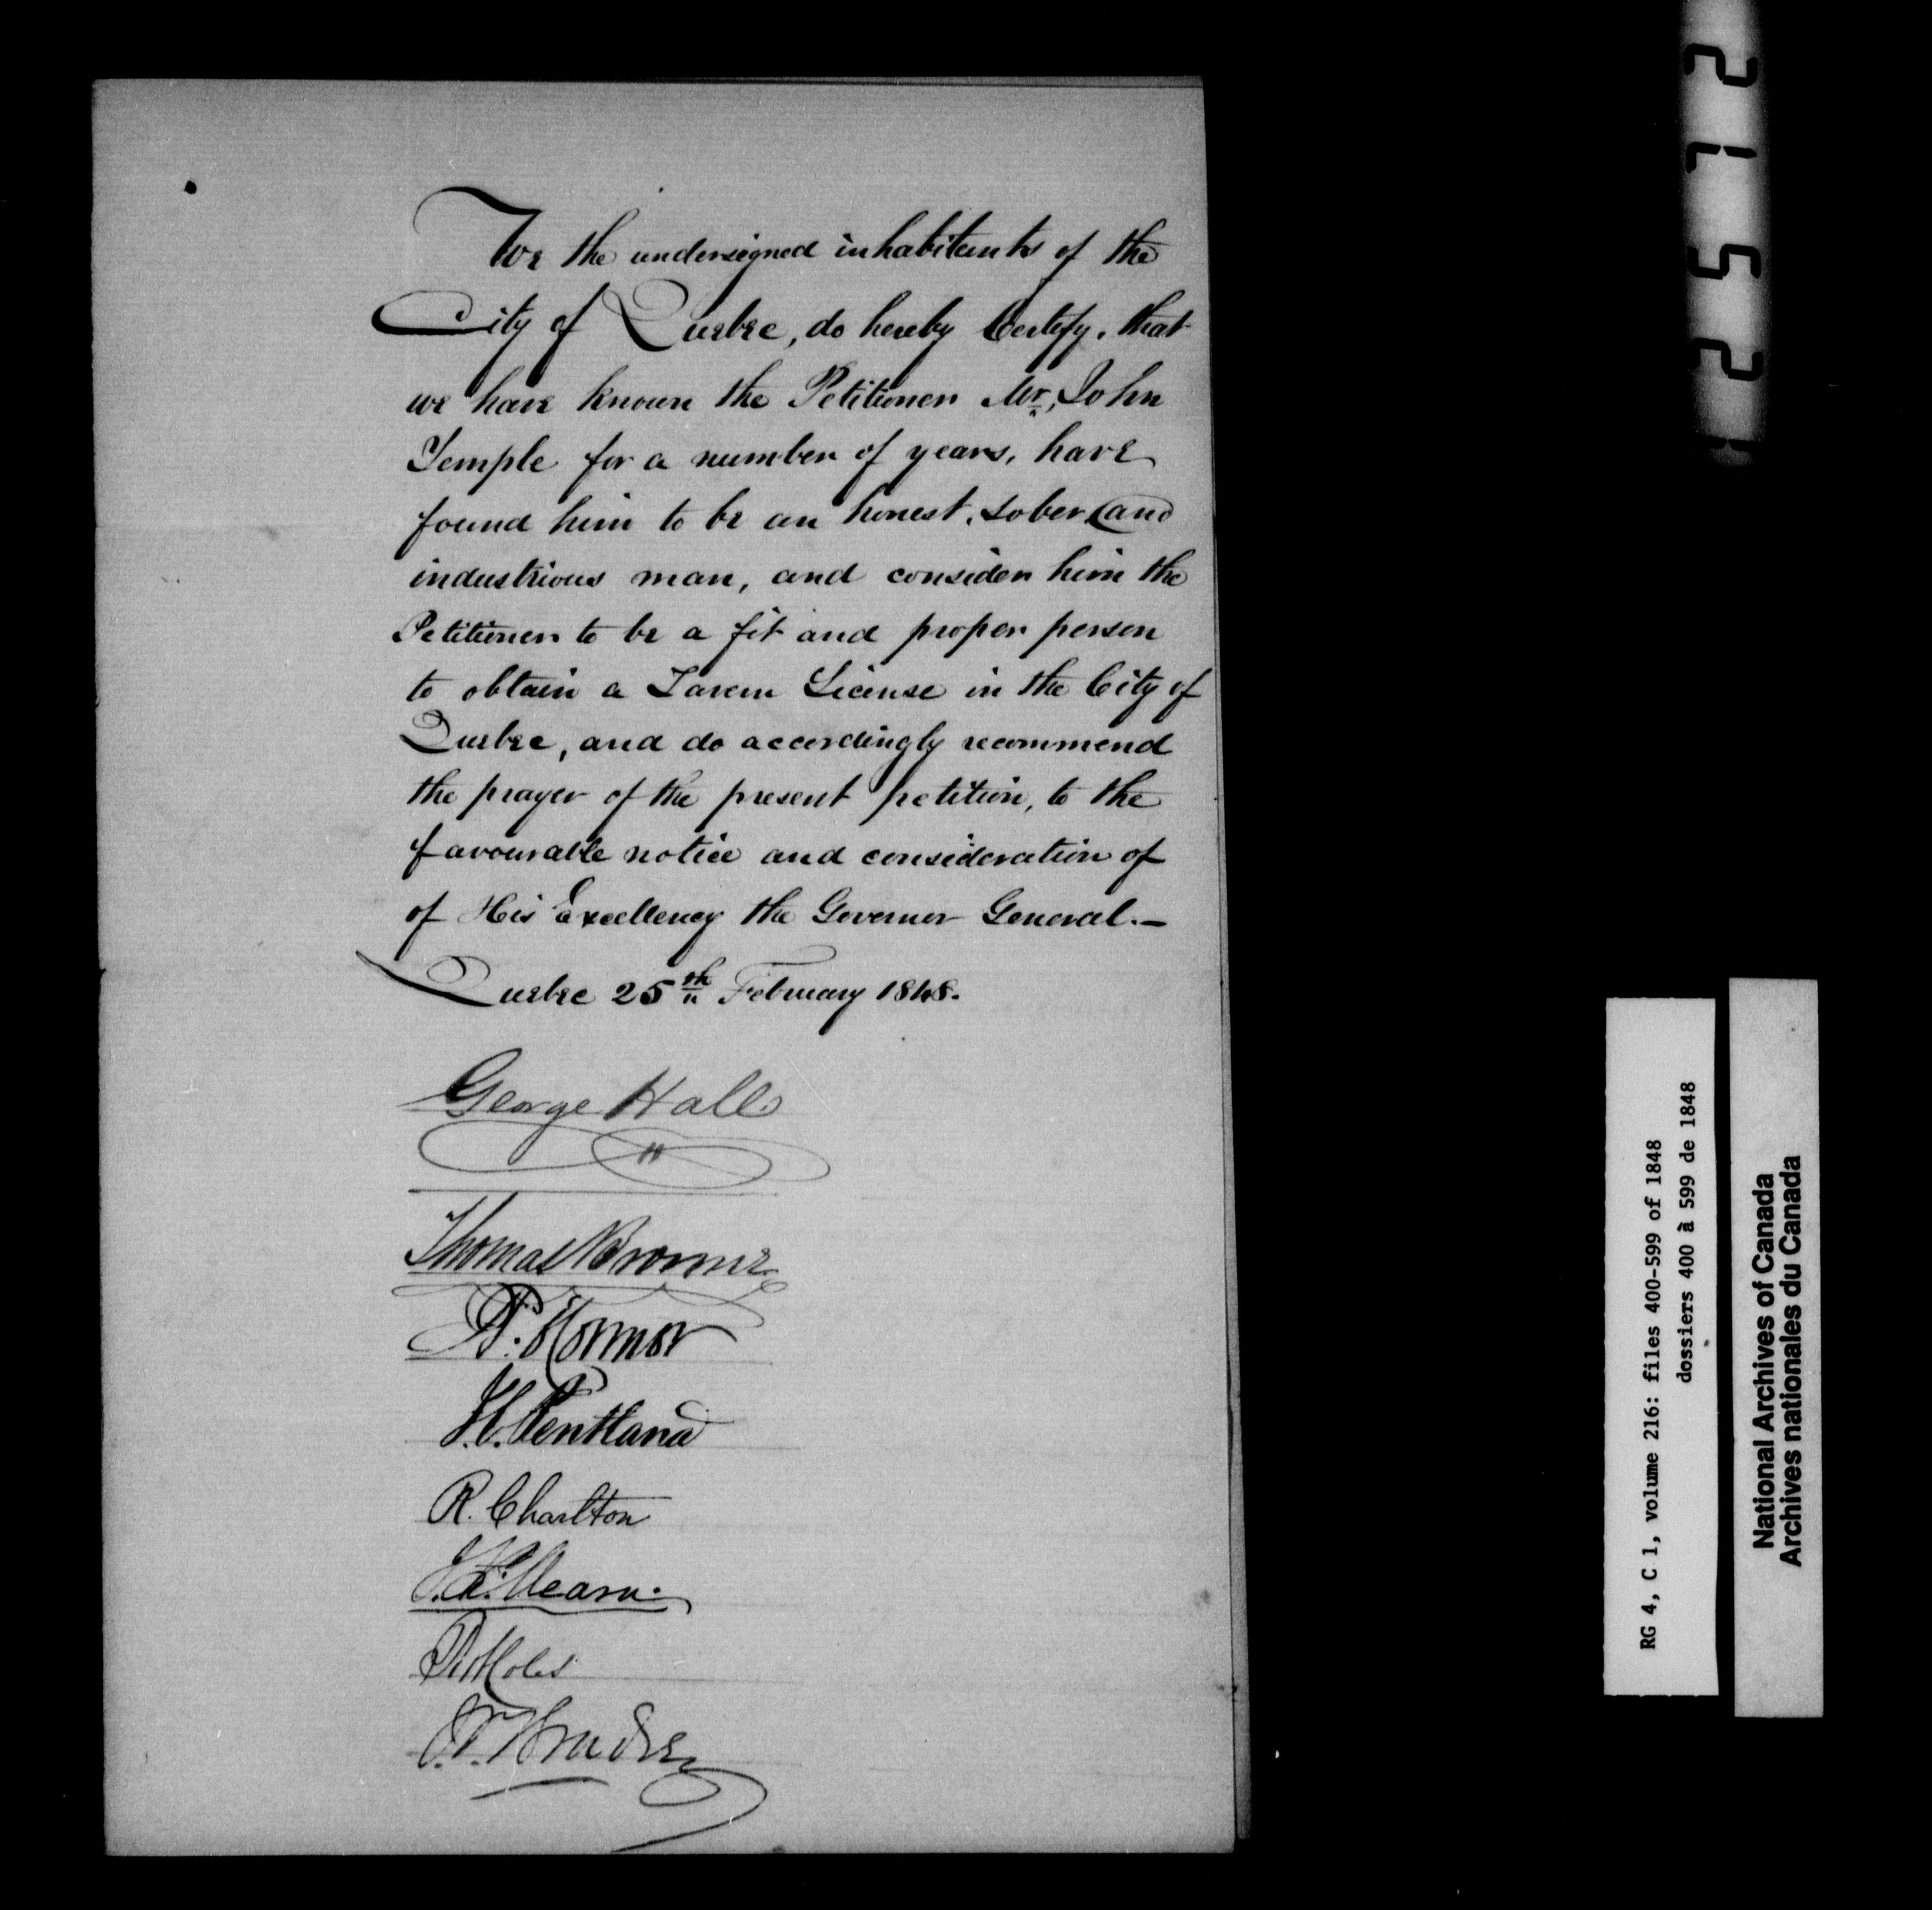 We the undersigned inhabitants of the
City of Quebec, do hereby Certify, that
we have known the Petitioner Mr, John
Temple for a number of years, have
found him to be an honest, sober and
industrious man, and consider him the
Petitioner to be a fit and proper person
to obtain a Tavern License in the City of
Quebec, and do accordingly recommend
the prayer of the present petition, to the
favourable notice and consideration of
of His Excellency the Governor General.—
Quebec 25th February 1848.
George Hall
Thomas
H. Pentland
R. Charlton
2152
RG 4, C 1, volume 216: files 400-599 of 1848
dossiers 400 à 599 de 1848
National Archives of Canada
Archives nationales du Canada